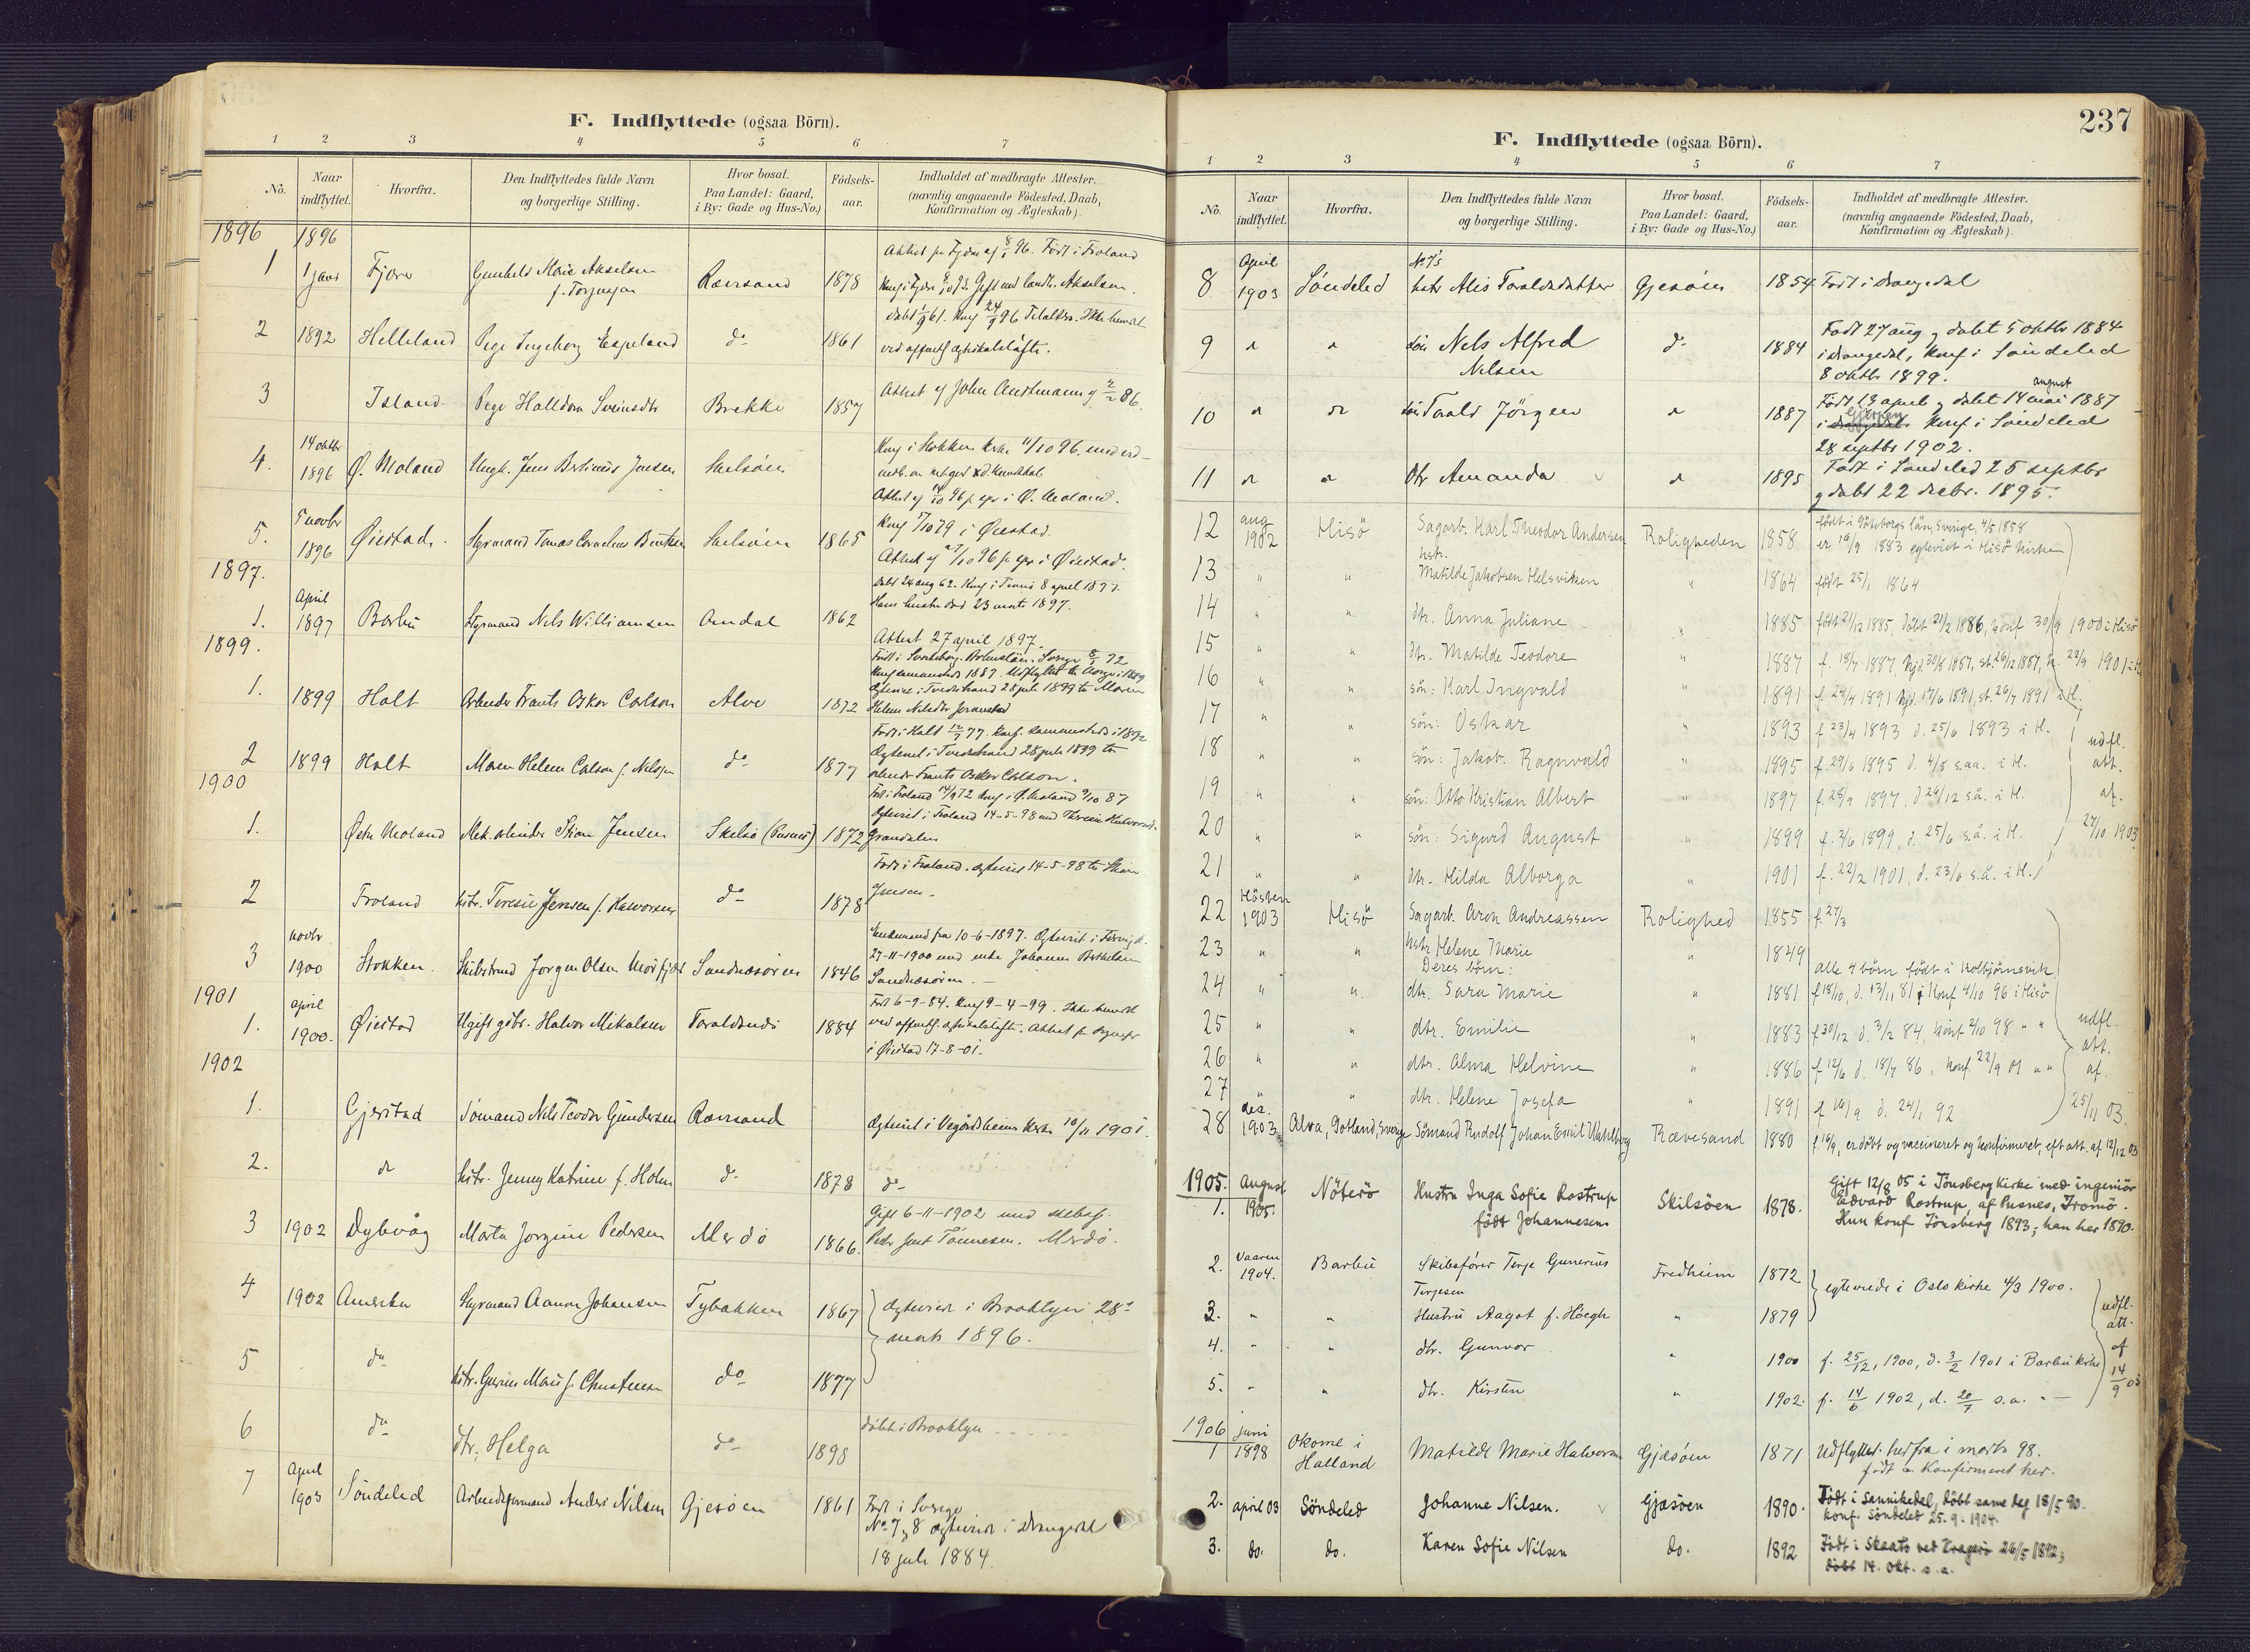 F. Indflyttede (ogsaa Börn).
1 2 3 4 5 6 7
No. Naar indflyttet. Hvorfra. Den Indflyttedes fulde Navn og borgerlige Stilling. Hvor bosat. Paa Landet: Gaard, i By: Gade og Hus-No.) Födsels-aar. Indholdet af medbragte Attester. (navnlig angaaende Födested, Daab, Konfirmation og Ægteskab).
1896 1896
1 1 Gunhild Marie Akselsen Rævesand 1878
2 1892 Helleland Pige Ingeborg Espeland do 1861
3 Island Pige Halldora Sveinsdtr Brekke 1857
4. 14 oktbr 1896 Ø. Moland Ungk. Jens Bertinius Jensen Skilsøen
Attest af 14/10 96 fr. spr i Ø. Moland.
5. 5 novbr 1896 Øiestad. Styrmand Tomas Cornelius Bentsen Skilsøen 1865 Konf 5/10 79 i Øiestad.
1897.
1. April 1897 Barbu Styrmand Nels Williamsen Arendal 1862 Døbt 24 aug 62. Konf i Tromö 8 april 1877.
Hans hustru död 23 marts 1897.
Attest 27 april 1897.
1899.
1. 1899 Holt Arbeider Frants Oskar Carlson Alve 1872
2 1899 Holt Maren Helene Carlson f. Nilsen do 1877 Født i Holt 12/7 77.
Ægteviet i Tvedestrand 28 juli 1899 til
arbeider Frants Oskar Carlson.
1900
1. Østre Moland Mek. arbeider Stian Jensen Skilsø (Pusnes) 1872
2 Froland hstr. Teresie Jensen f. Halvorsen do 1878 Født i Froland. ægteviet 14-5-98 til Stian
Jensen
3 novbr 1900 Stokken Skibstmd Jørgen Olsen Sandnæsøren 1846 Enkemand fra 10-6-1897.
27-11-1900 med enke Johanne
Sandnæsøren.
1901
1. april 1900. Øiestad Ugift gdbr. Halvor Mikalsen Toraldsnds 1884 Født 6-9-84. Konf 9-4-99.
i Øiestad 17-8-01.
1902
1. Gjerstad Sömand Nils Teodor Gundersen Rævesand Ægteviet i Vegårdsheiens kirke 10/11 1901.
2. do hstr. Jenny Katrine f. Holm do 1878 do
3 1902 Dybvåg Marta Jorgine Pedersen Merdö 1866. Gift 6-11-1902 med
Peder Tönnesen. Merdö.
4 1902 Amerika Styrmand Aanon Johansen Tybakken 1867 Ægteviet i Brooklyn 28de
marts 1896.
5 do hstr. Gurine Marie f. Christensen do 1877
6 do dtr. Helga do 1898 döbt i Brooklyn
7 April 1903 Söndeled Arbeidsformand Anders Nilsen Gjesøen 1861 Født i Sverige
No 7 og 8 ægteviet i Drangedal
18 juli 1884.
237
F. Indflyttede (ogsaa Börn).
1 2 3 4 5 6 7
No. Naar indflyttet. Hvorfra. Den Indflyttedes fulde Navn og borgerlige Stilling. Hvor bosat. Paa Landet: Gaard, i By: Gade og Hus-No.) Födsels-aar. Indholdet af medbragte Attester. (navnlig angaaende Födested, Daab, Konfirmation og Ægteskab).
8 April 1903 Söndeled No 7's hstr Alis Taraldsdatter Gjesøen 1854 Født i Drangedal
9 " " sön Nels Alfred Nilsen do 1884 Født 27 aug og döbt 5 oktbr 1884
i Drangedal, konf i Söndeled
8 oktbr 1899.
10 " " sön Tarald Jörgen " 1887 Født 13 april og döbt 14 mai august 1887
i Drangedal konf i Söndeled
28 septbr 1902.
11 " " dtr Amanda " 1895 Født i Söndeled 25 septbr
og döbt 22 decbr. 1895.
12 aug 1902 Hisö Sagarb. Karl Theodor Andersen Roligheden 1858 født i Göteborgs län, Sverige, 4/5 1858
er 16/9 1883 egteviet i Hisö kirke
13 " " hstr. Matilde Jakobsen Helsviken " 1864 født 25/1 1864
14 " " dtr. Anna Juliane " 1885 født 21/12 1885, döbt 21/2 1886, konf 30/9 1900 i Hisö
15 " " dtr. Matilde Teodore " 1887 f. 15/7 1887, hjd 30/8 1887, st. 26/12 1887, k. 22/9 1901 i H.
16 " " sön: Karl Ingvald " 1891 f. 24/4 1891 hjd. 17/6 1891, st. 26/7 1891 i H.
17 " " sön: Oskar " 1893 f. 23/4 1893 d. 25/6 1893 i H.
18 " " sön: Jakob Ragnvald " 1895 f. 29/6 1895 d. 4/8 s.aa. i H.
19 " " sön: Otto Kristian Albert " 1897 f. 28/9 1897, d 26/12 s.å. i H.
20 " " sön: Sigurd August " 1899 f. 2/6 1899, d. 25/6 s.å. i H.
21 " " dtr. Hilda Alborga " 1901 f. 22/2 1901, d. 23/6 s.å. i H.
udfl. att. af. 27/10 1903
22 Hösten 1903 Hisö Sagarb. Aron Andreassen Rolighed 1855 f. 27/3
23 " " hstr Helene Marie " 1849
Deres börn: alle 4 börn født i Kolbjörnsvik
24 " " dtr. Sara Marie " 1881 f 18/10, d. 13/11 81, Konf 4/10 96 i Hisö
25 " " dtr. Emilie " 1883 f 30/12 d. 3/2 84, konf 2/10 98 " "
26 " " dtr. Alma Helvine " 1886 f 12/6 d. 18/7 86, konf. 22/9 01 " "
27 " " dtr. Helene Josefa " 1891 f 16/9 d. 24/1 92
udfl. att. af. 25/11 03
28 dec. 1903 Alva, Gotland, Sverige Sömand Rudolf Johan Emil Wahlberg Rævesand 1880 f. 16/9, er döbt og vaccineret og konfirmeret, eft att. af 12/12 03
1905.
1. August 1905. Nöterö Hustru Inga Sofie Rostrup født Johannesen Skilsöen 1878. Gift 12/8 05 i Tönsberg kirke med ingeniör
Edvard Rostrup, af Pusnes, Tromö.
Hun konf Tönsberg 1893; han her 1890.
2. Vaaren 1904. Barbu Skibsförer Terje Gunerius Terjesen Fredheim 1872 egteviede i Oslo kirke 4/3 1900.
3. " " Hustru Aagot f. Høegh " 1879
4. " " dtr. Gunvor " 1900 f. 25/12, 1900, d. 3/2 1901 i Barbu kirke
5. " " dtr. Kirsten " 1902. f. 14/6 1902, d. 20/7 s.a. "
udfl. att. af 14/9 05
1906
1 juni 1898 Okome i Halland Matilde Marie Halvorsen Gjæsöen 1871 Udflyttet herfra i marts 98.
født & konfirmeret her.
2. april 03 Söndeled Johanne Nilsen. Gjæsöen 1890. Född i Sannikedal, döbt same dag 18/5 90.
konf. Söndeled 25.9.1904.
3. do. do. Karen Sofie Nilsen do. 1892 Född i Skaatö ved Kragerö 26/5 1892;
döbt 14. okt. s.a.